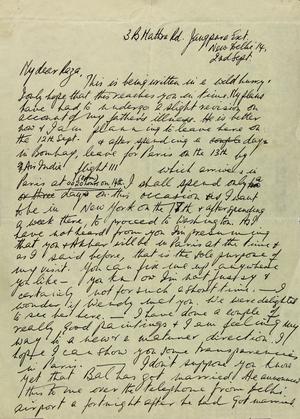 3B Mathra Rd. Jangpura Ext.
New Delhi 14.
2nd Sept.
My dear Raza,
This is being written in a wild hurry.
I only hope that this reaches you in time. My plans
have had to undergo a slight revision on
account of my father's illness. He is better
now & I am planning to leave here on
the 12th Sept. & after spending a couple days
in Bombay, leave for Paris on the 13th by
Air India flight 111 which arrives in
Paris at on 14th. I shall spend only
or three days on this occasion as I want
to be in New York on the 17th & after spending
a week there to proceed to Washington. As I
have not heard from you I'm presuming
that you & Akbar will be in Paris at the time &
as I said before, that is the sole purpose of
my visit. You can fix me up anywhere
you like — you know I'm not fussy &
certainly not for such a short time. — I
wonder if Wendy met you. We were delighted
to see her here. — I have done a couple of
really good paintings & I am feeling my
way to a new & maturer direction. I
hope I can show you some transparencies
in Paris. — I don't suppose you know
yet that Bal has got married. He announced
this to me over the telephone from Delhi
airport a fortnight after he had got married